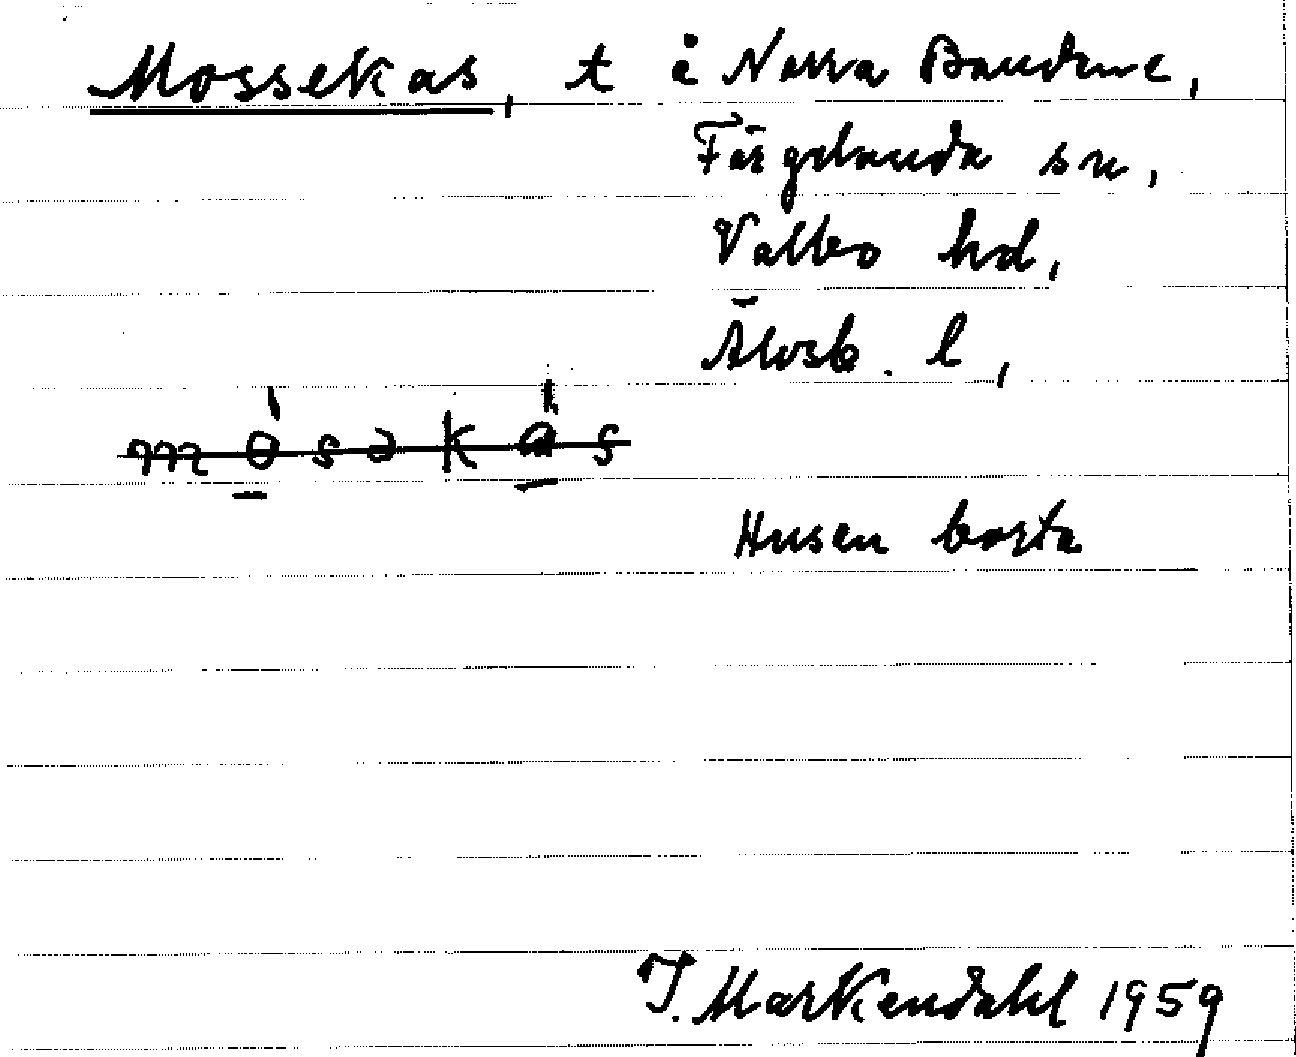 Mossekas, t å Norra Bäudene,
Färgelanda sn,
Valbo hd,
Älvsb. l,
mosəkas
Husen borta
J. Markendahl 1959